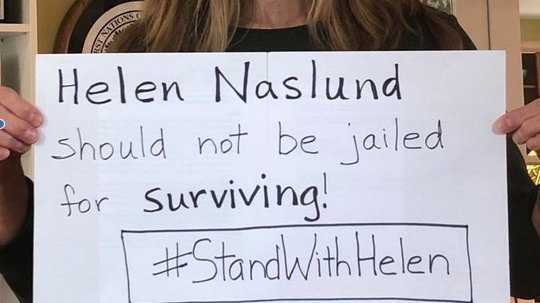 FIRST NATIONS
Helen Naslund
should not be jailed
for surviving!
#StandWithHelen